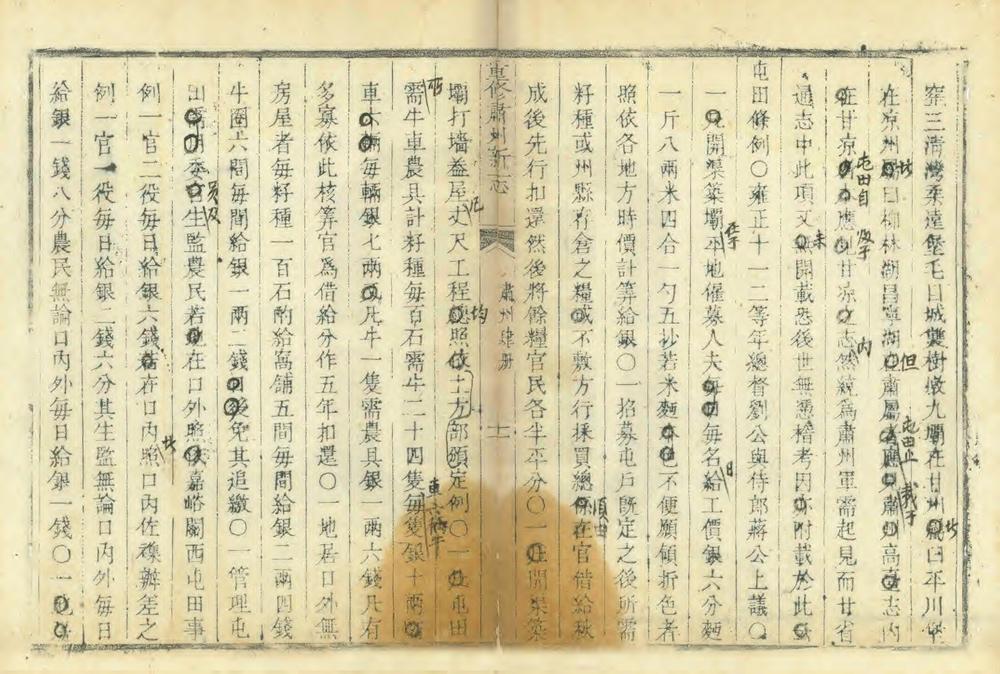 窰三清灣柔遠堡毛目城雙樹墩九壩在甘州曰平川堡
在涼州曰柳林湖昌寧湖肅屬者應肅高志內
在甘涼應甘涼之志然統爲肅州軍需起見而甘省
通志中此項文開載恐後世無憑稽考因附載於此
屯田條例〇雍正十一二等年總督劉公與侍郎蔣公上議〇
一凡開渠築壩平地僱募人夫每名給工價銀六分麵
一斤八兩米四合一勺五抄若米麵不便願領折色者
照依各地方時價計算給銀〇一招募屯戶既定之後所需
籽種或州縣存倉之糧或不敷方行採買總在官借給秋
成後先行扣還然後將餘糧官民各半平分〇一開渠築
重修肅州新志
肅州肆册
十一
壩打墻蓋屋丈尺工程照依部頒定例〇一屯田
需牛車農具計籽種每百石需牛二十四隻每隻銀十兩
車六輛每輛銀七兩凡牛一隻需農具銀一兩六錢凡有
多寡依此核算官爲借給分作五年扣還〇一地居口外無
房屋者每籽種一百石酌給窩舖五間每間給銀二兩四錢
牛圈六間每間給銀一兩二錢免其追繳〇一管理屯
田需委生監農民若在口外照嘉峪關西屯田事
例一官二役每日給銀六錢若在口內照口內佐襍辦差之
例一官一役每日給銀二錢六分其生監無論口內外每日
給銀一錢八分農民無論口內外每日給銀一錢〇一